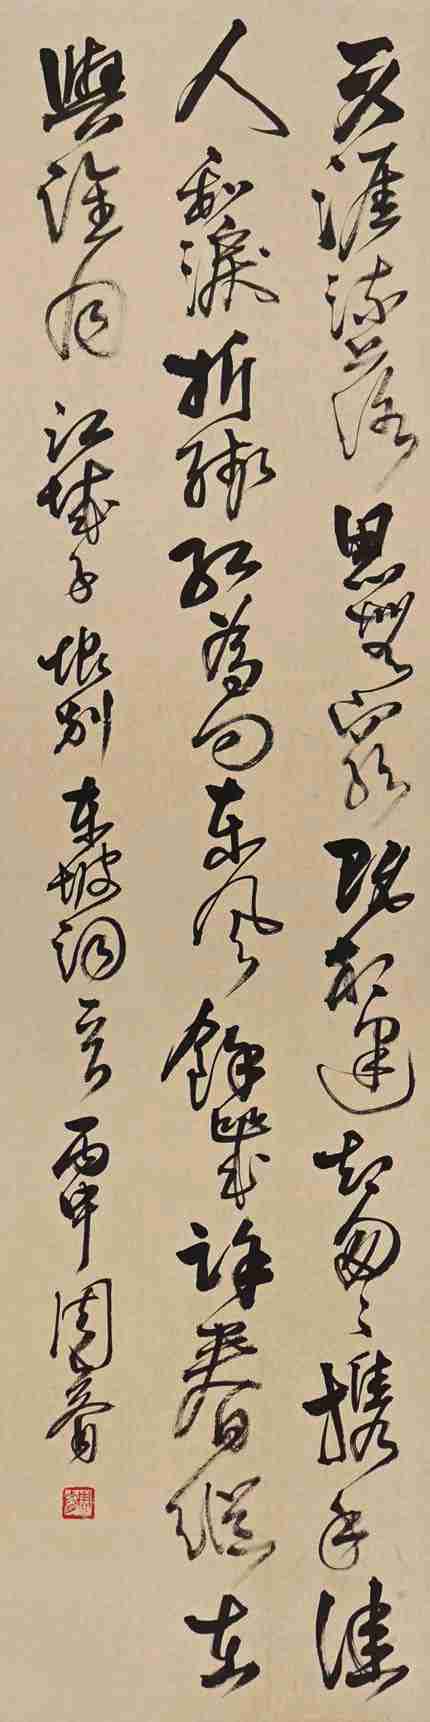 天涯流落思無窮既相逢却匆匆攜手佳
人和淚折殘紅為問東風餘幾許春縱在
與誰同江城子恨別東坡詞一首丙申周